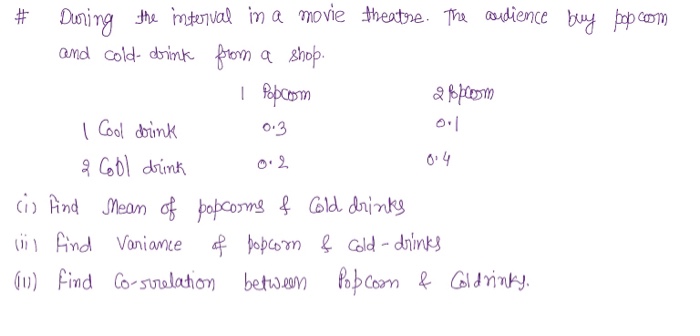 # During the interval in a movie theatre. The audience buy popcorn
and cold-drink from a shop.
1 Popcorn 2 Popcorn
1 Cool drink 0.3 0.1
2 Cool drink 0.2 0.4
(i) Find Mean of popcorns & Cold drinks
(ii) Find Variance of popcorn & cold-drinks
(iii) Find Co-rrelation between Popcorn & Coldrinks.